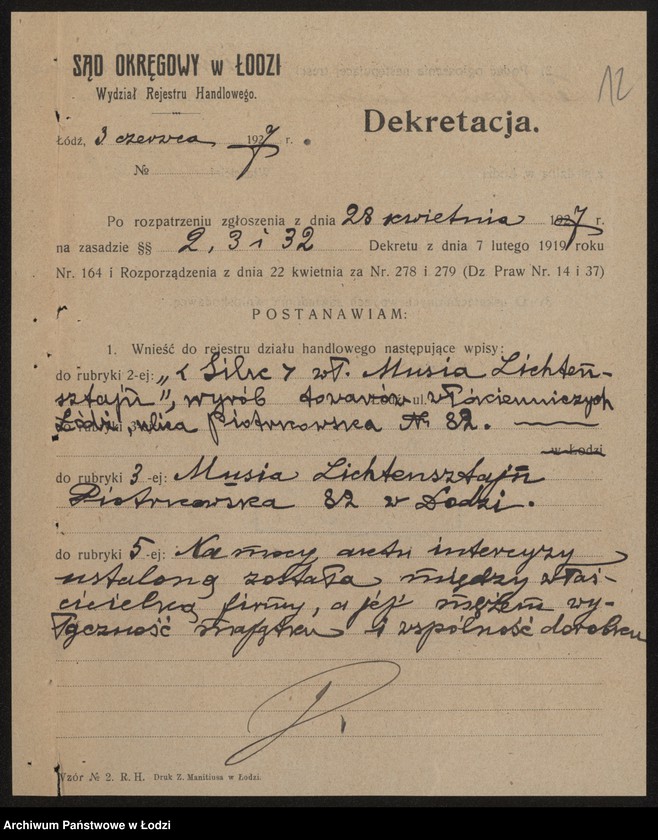 SĄD OKRĘGOWY w ŁODZI
Wydział Rejestru Handlowego.
12
Dekretacja.
Łódź, 3 czerwca 1927 r.
№
Po rozpatrzeniu zgłoszenia z dnia 28 kwietnia 1927 r.
na zasadzie §§ 2, 3 i 32 Dekretu z dnia 7 lutego 1919 roku
Nr. 164 i Rozporządzenia z dnia 22 kwietnia za Nr. 278 i 279 (Dz Praw Nr. 14 i 37)
POSTANAWIAM:
1. Wnieść do rejestru działu handlowego następujące wpisy:
do rubryki 2-ej: „ wł. Musia Lichten-
sztajn", wyrób towarów włókienniczych
Łódź, ulica Piotrkowska № 82.
w Łodzi
do rubryki 3-ej: Musia Lichtensztajn
Piotrkowska 82 w Łodzi.
do rubryki 5-ej: Na mocy aktu intercyzy
ustaloną została między właś-
cicielką firmy, a jej mężem wy-
łączność majątku i wspólność dorobku
Wzór № 2. R. H. Druk Z. Manitiusa w Łodzi.
Archiwum Państwowe w Łodzi